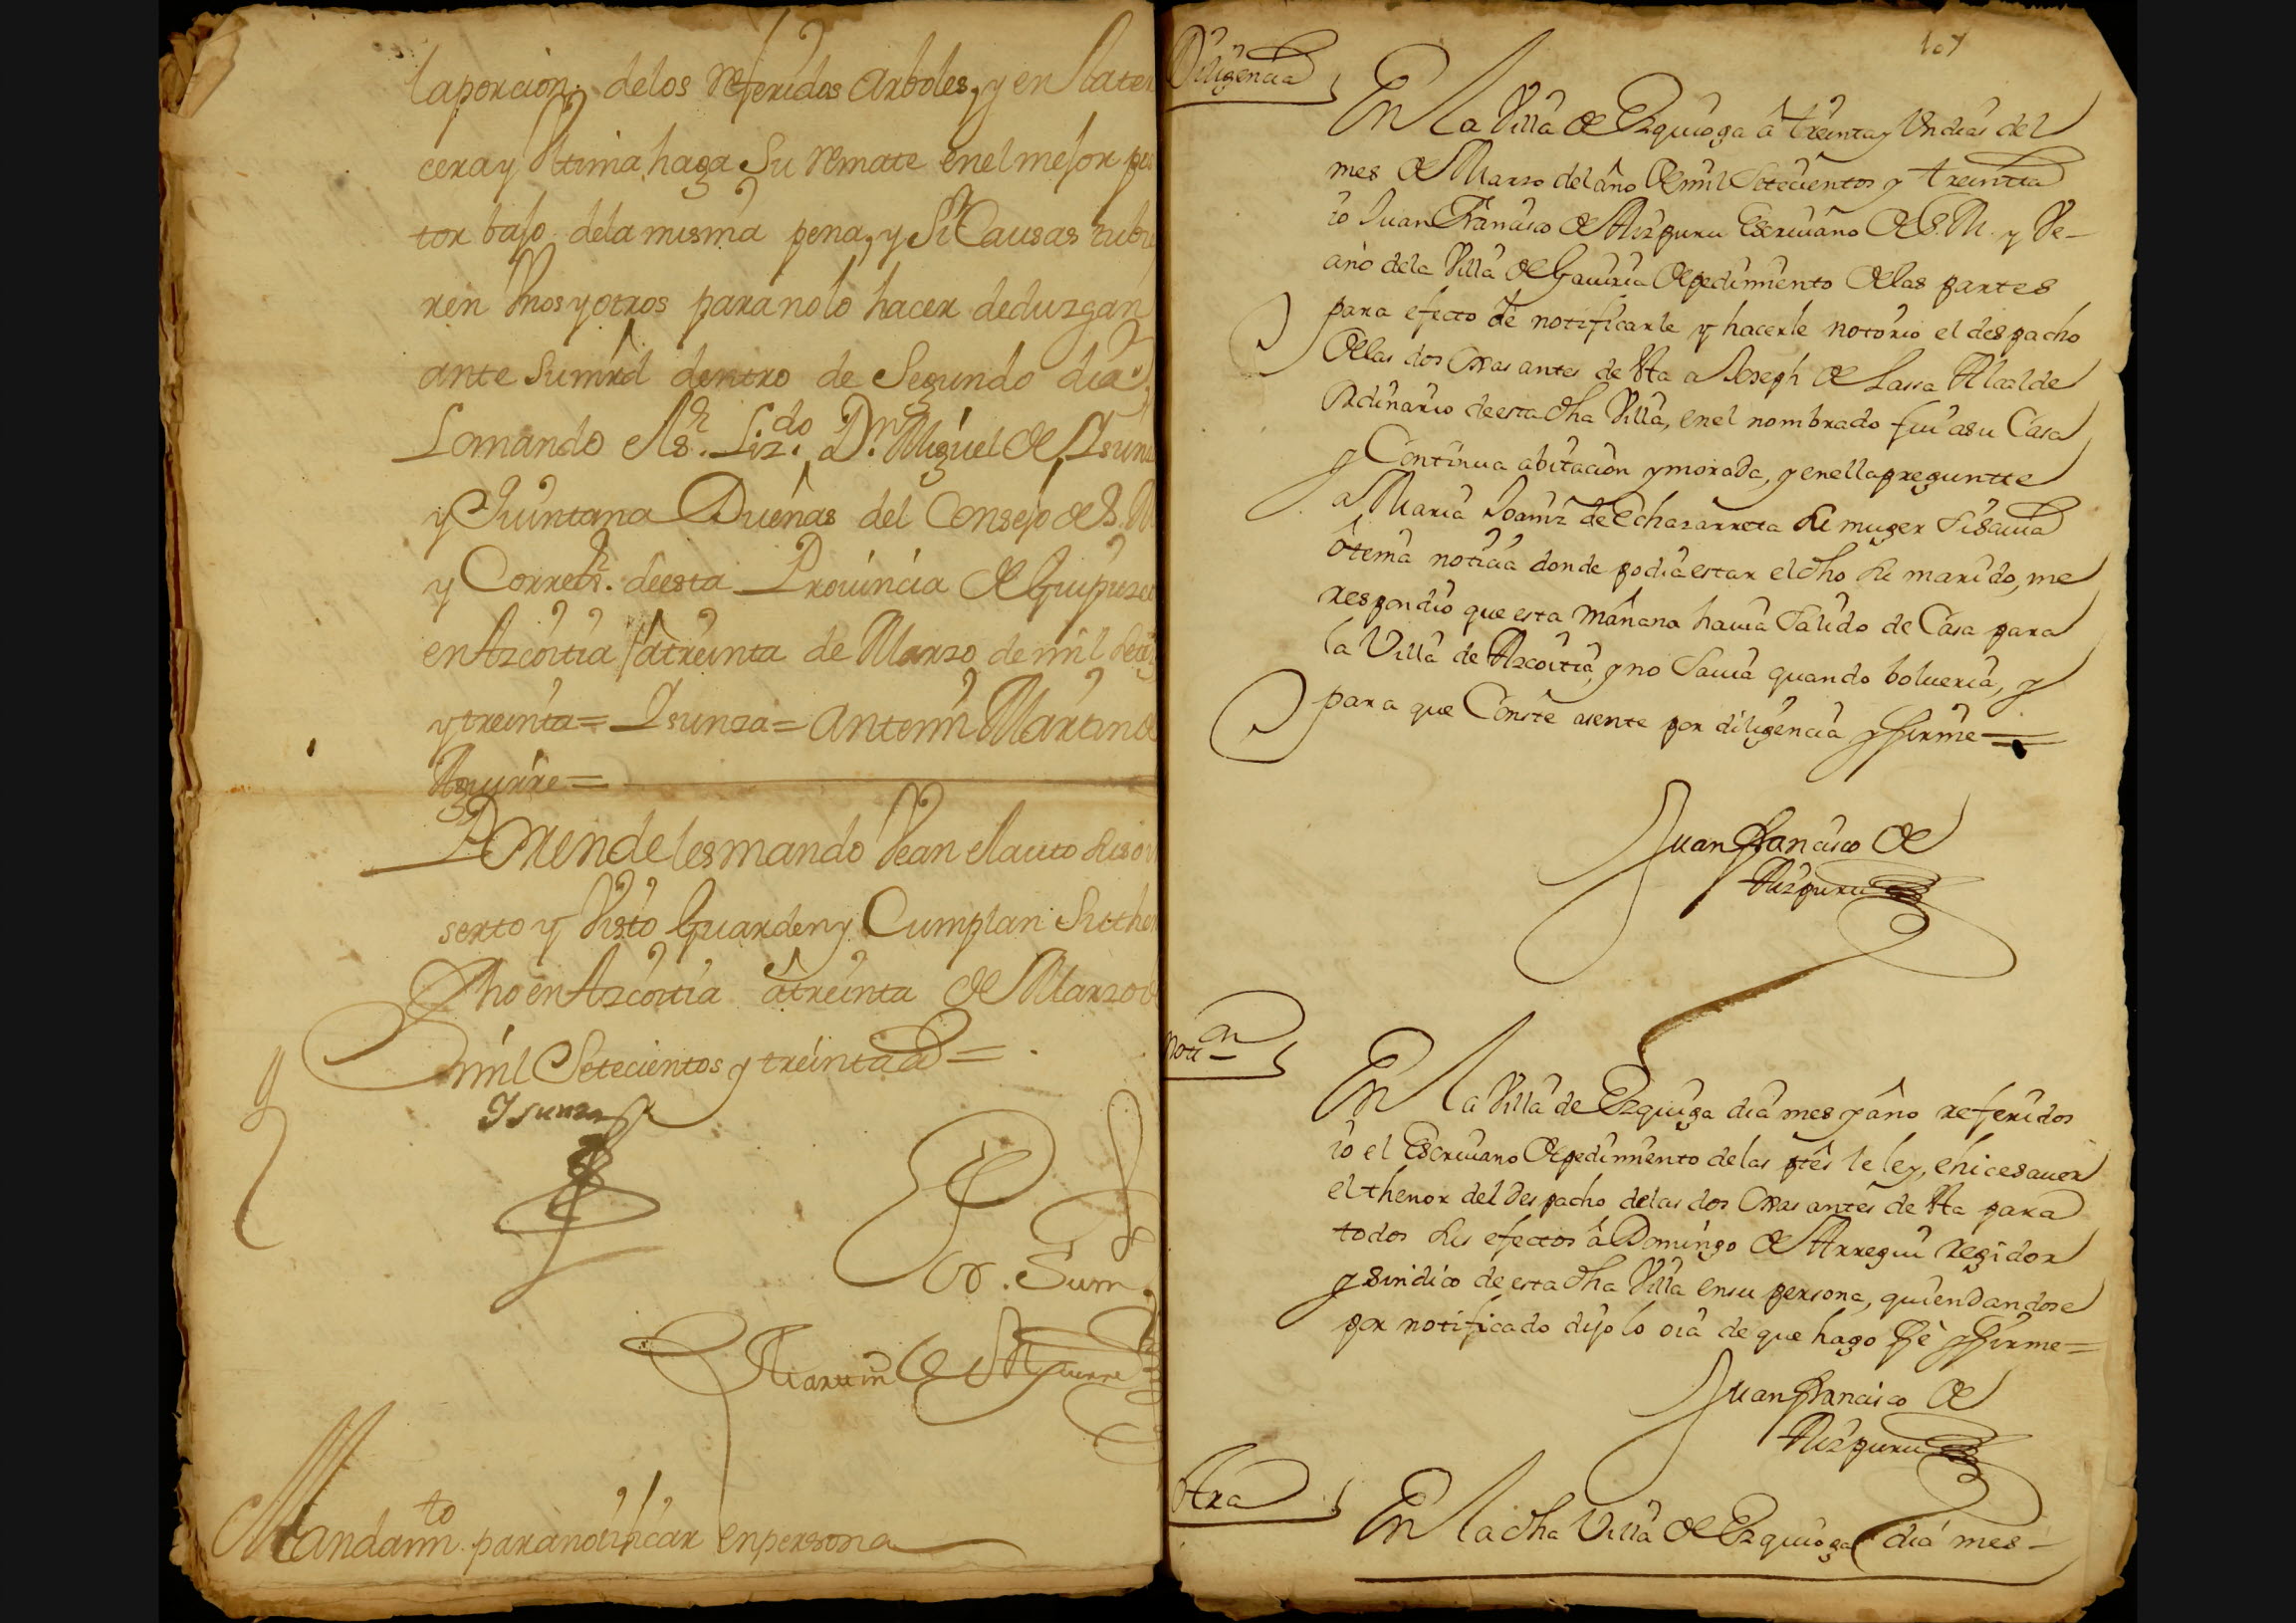 la porcion, delos referidos arboles, y en la ter
cera y Vltima haga Su remate en el mejor pos
tor bajo dela misma pena, y Si Causas tubie
ren Vnos y otros para no lo hacer deduzgan
ante Su mrd dentro de Segundo dia,
Lo mando el Sr. Liz.do Dn. Miguel de Isunza
y Quintana Dueñas del Consejo de S. M
y Corregr. de esta Prouincia de Guipuzcoa
en Azcoitia a treinta de Marzo de mil Setez
y treinta = Isunza = ante mi Martin de
Aguirre =
Por ende les mando Vean el auto Suso in
serto y Visto Guarden y Cumplan Su thenor
fho en Azcoitia â treinta de Marzo de
mil Setecientos y treinta =
Isunza
Por. Sum
Martin de Aguirre
Mandam.to para notificar en persona
107
Diligencia
En la Villa de Ezquioga â treinta y Vn dias del
mes de Marzo del año de mil Setecientos y treinta
io Juan Francisco de Aizpuru Escriuano de S. M. y Ve-
cino dela Villa de Gauiria de pedimiento de las partes
para efecto de notificarle y hacerle notorio el despacho
de las dos ojas antes de Sta a Joseph de Lasa Alcalde
Ordinario de esta dha Villa, en el nombrado fui a su Casa
y Continua abitacion y morada, y en ella pregunte
a Maria Joaniz de Echazarreta Su muger Si Sauia
ô tenia noticia donde podia estar el dho Su marido, me
respondio que esta mañana hauia Salido de Casa para
la Villa de Azcoitia, y no Sauia quando bolueria, y
para que Conste asente por diligencia y firme =
Juan Francisco de
Aizpuru
Noti.on
En la Villa de Ezquiga dia mes y año referidos
io el Escriuano de pedimiento de las ptes le ley, e hice sauer
el thenor del despacho de las dos ojas antes de Sta para
todos Sus efectos â Domingo de Arregui regidor
y sindico de esta dha Villa en su persona, quien dandose
por notificado dijo lo oia de que hago fe y firme =
Juan Francisco de
Aizpuru
Otra
En la dha Villa de Ezquioga dia mes -